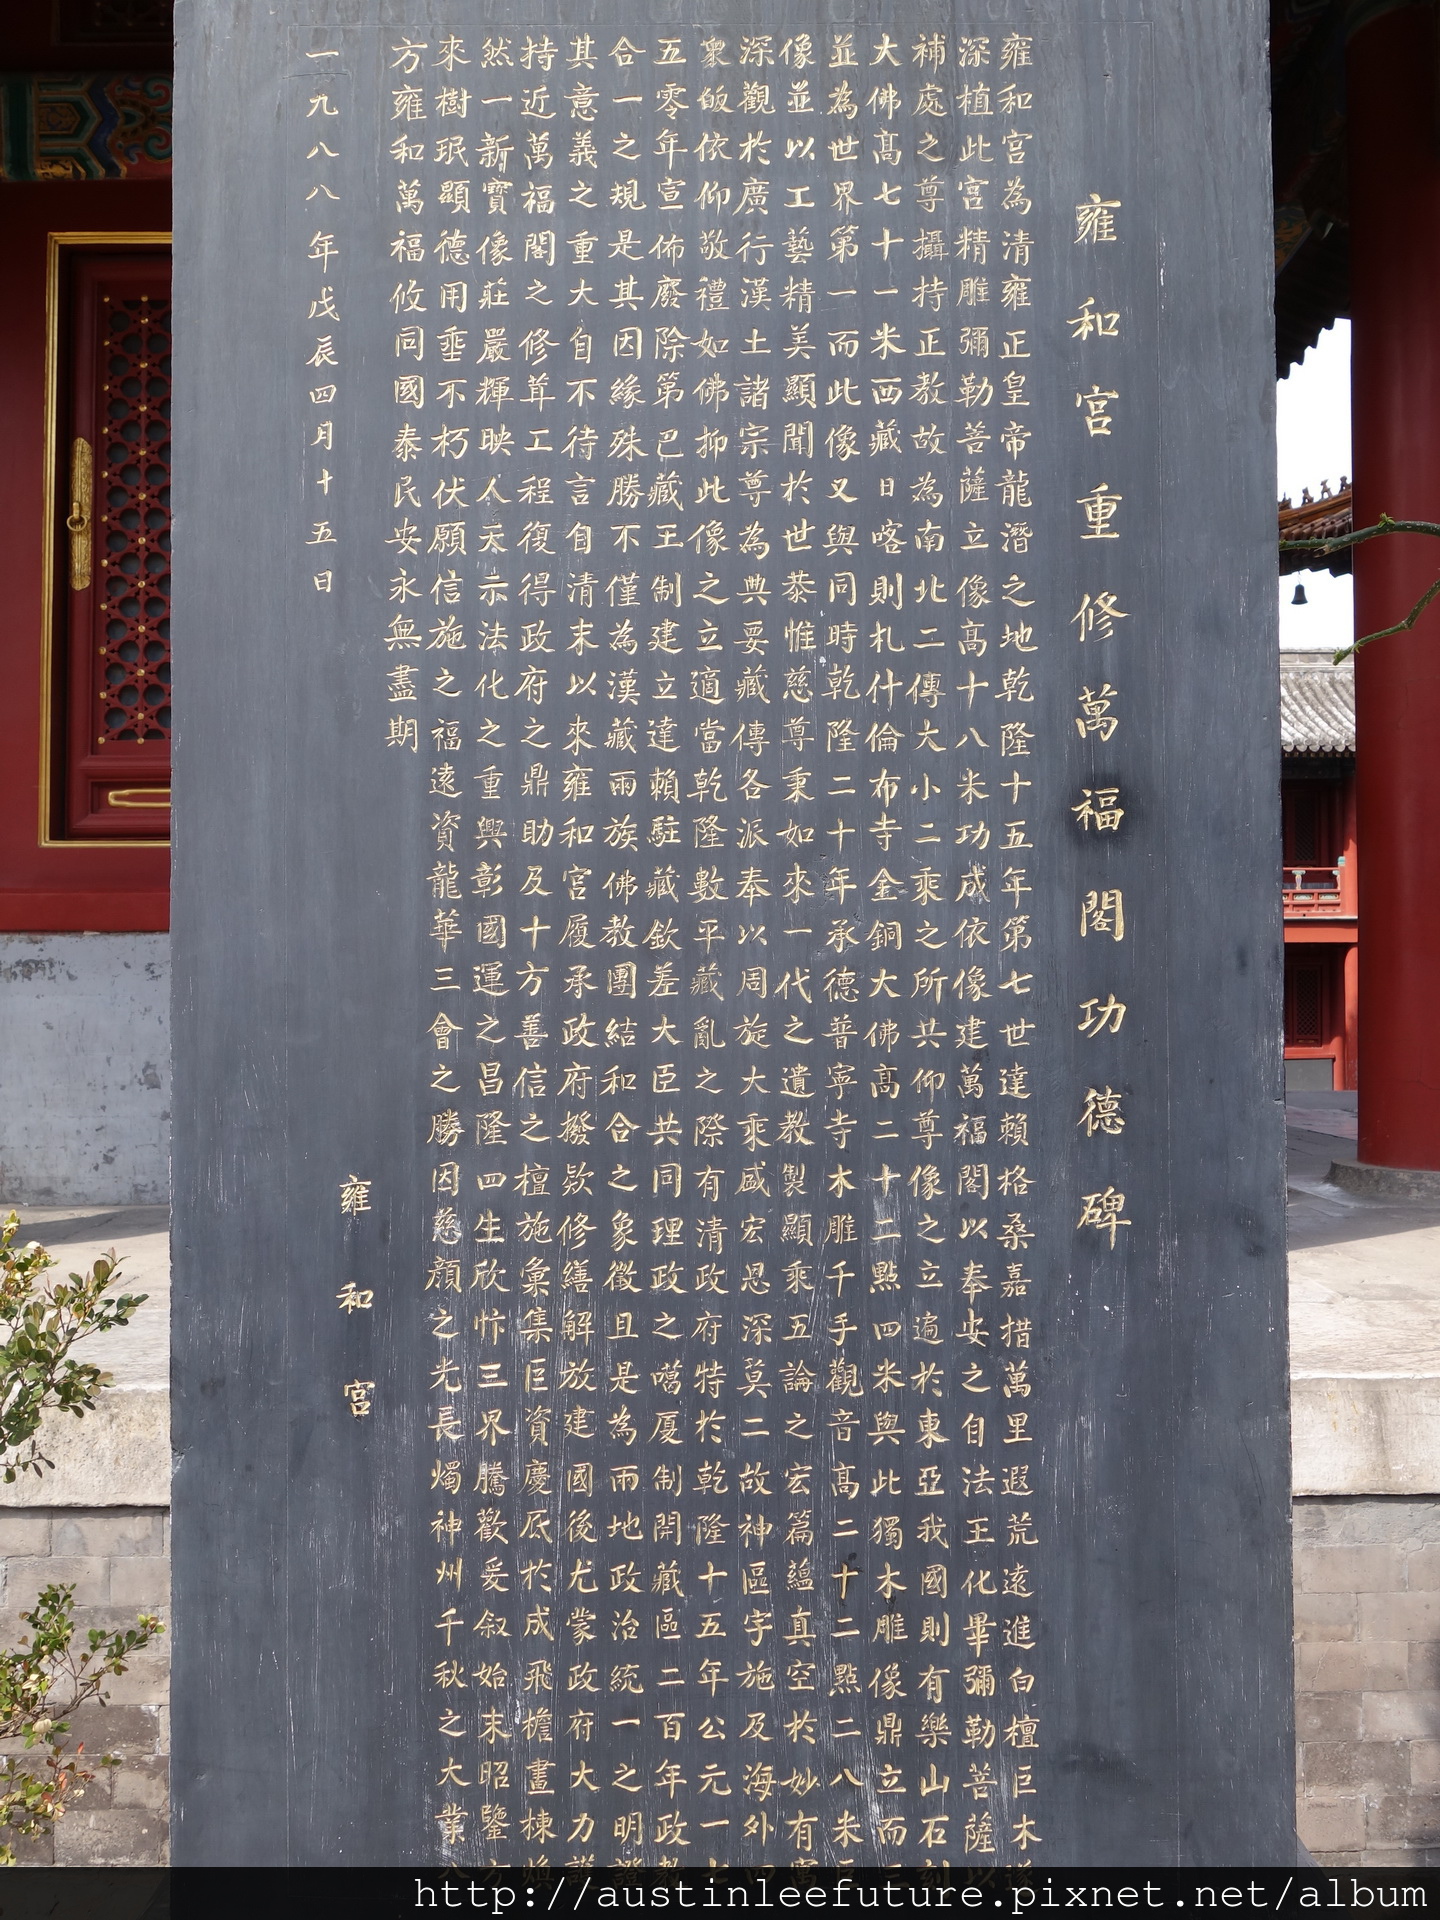 雍和宮重修萬福閣功德碑
雍和宮為清雍正皇帝龍潛之地乾隆十五年第七世達賴格桑嘉措萬里遐荒遠進白檀巨木遂
深植此宮精雕彌勒菩薩立像高十八米功成依像建萬福閣以奉安之自法王化畢彌勒菩薩以
補處之尊攝持正教故為南北二傳大小二乘之所共仰尊像之立遍於東亞我國則有樂山石刻
大佛高七十一米西藏日喀則札什倫布寺金銅大佛高二十二點四米與此獨木雕像鼎立而三
並為世界第一而此像又與同時乾隆二十年承德普寧寺木雕千手觀音高二十二點二八米巨
像並以工藝精美顯聞於世恭惟慈尊秉如來一代之遺教製顯乘五論之宏篇蘊真空於妙有寓
深觀於廣行漢土諸宗尊為典要藏傳各派奉以周旋大乘咸宏恩深莫二故神區宇施及海外四
衆皈依仰敬禮如佛抑此像之立適當乾隆數平藏亂之際有清政府特於乾隆十五年公元一七
五零年宣佈廢除第巴藏王制建立達賴駐藏欽差大臣共同理政之噶厦制開藏區二百年政教
合一之規是其因緣殊勝不僅為漢藏兩族佛教團結和合之象徵且是為兩地政治統一之明證
其意義之重大自不待言自清末以來雍和宮履承政府撥款修繕解放建國後尤蒙政府大力護
持近萬福閣之修茸工程復得政府之鼎助及十方善信之檀施彙集巨資慶厎於成飛檐畫棟煥
然一新寶像莊嚴輝映人天示法化之重興彰國運之昌隆四生欣忭三界騰歡爰叙始末昭鑒方
來樹珉顯德用垂不朽伏願信施之福遠資龍華三會之勝因慈顔之光長燭神州千秋之大業八
方雍和萬福攸同國泰民安永無盡期
雍和宮
一九八八年戊辰四月十五日
http://austinleefuture.pixnet.net/album